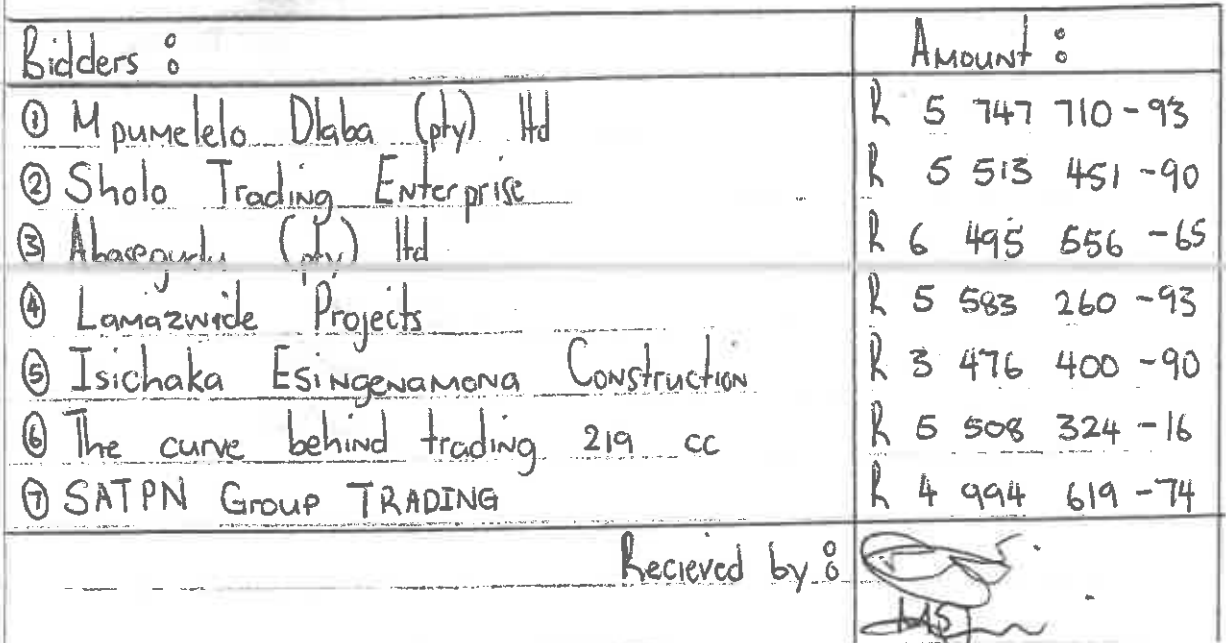 Bidders : Amount :
① Mpumelelo Dlaba (pty) ltd R 5 747 710-93
② Sholo Trading Enterprise R 5 513 451-90
③ (pty) ltd R 6 495 556-65
④ Lamazwide Projects R 5 583 260-93
⑤ Isichaka Esingenamona Construction R 3 476 400-90
⑥ The curve behind trading 219 cc R 5 508 324-16
⑦ SATPN Group TRADING R 4 994 619-74
Recieved by :